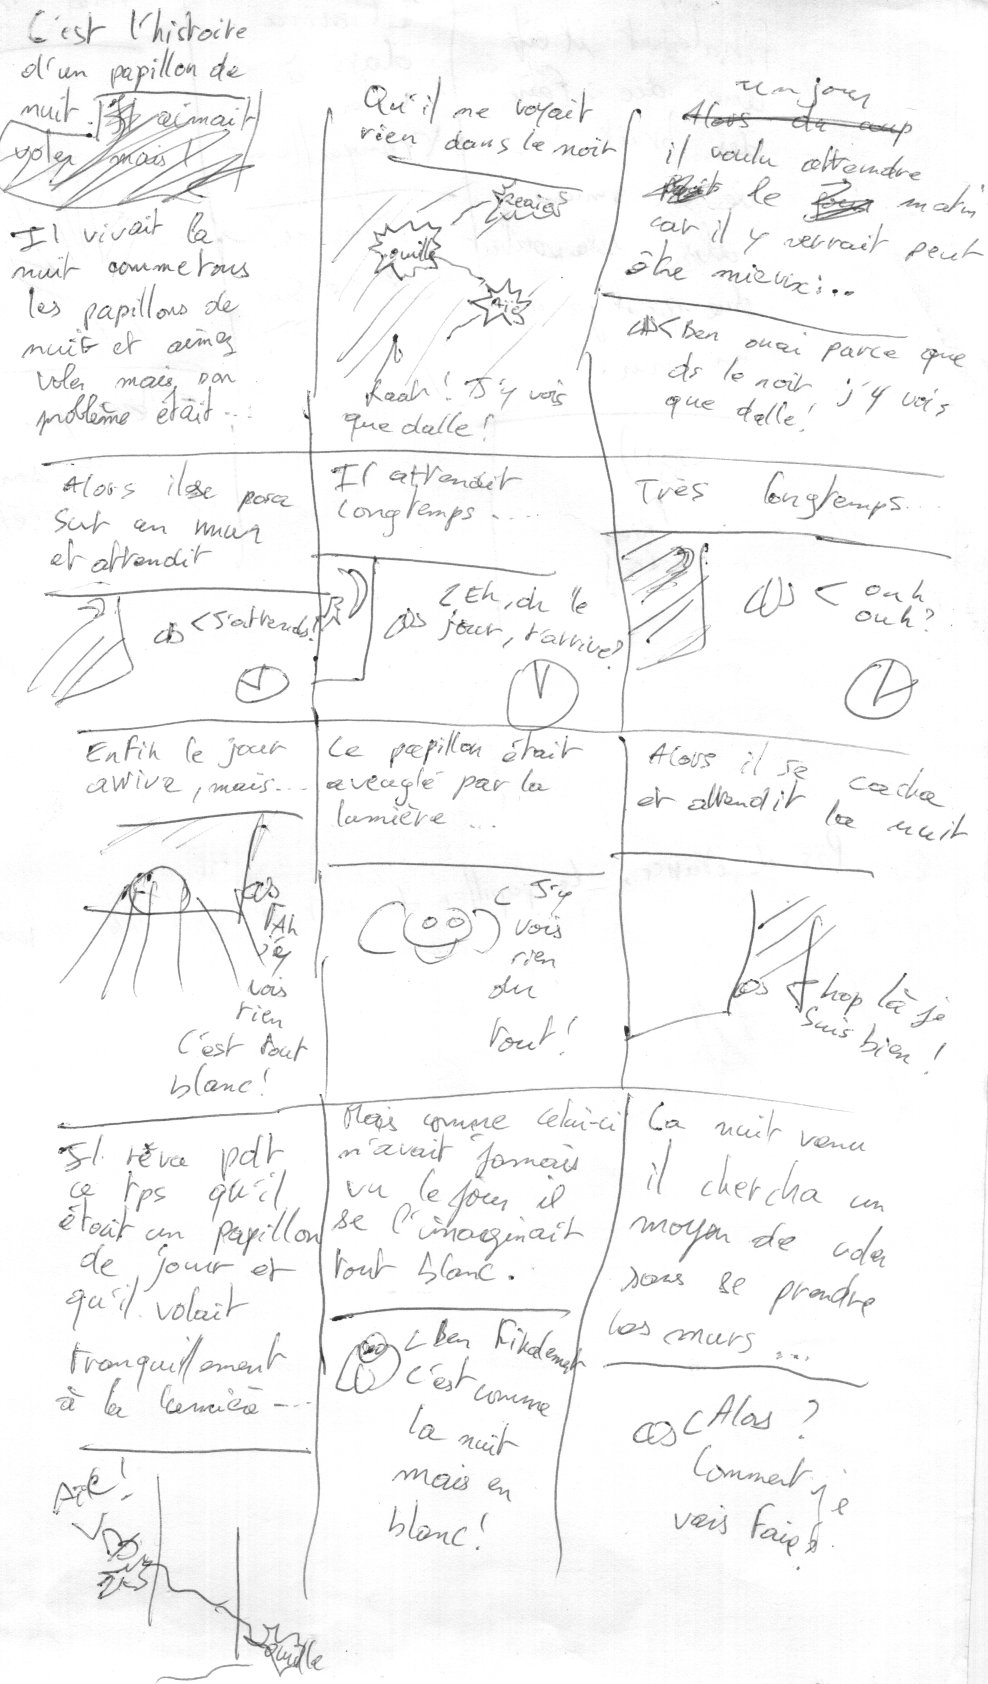 C'est l'histoire
d'un papillon de
nuit. Il aimait
voler mais
Il vivait la
nuit comme tous
les papillons de
nuit et aimez
voler mais son
problème était...
Qu'il ne voyait
rien dans le noir
ouille
Aïe
Raah! J'y vois
que dalle!
un jour
Alors du coup
il voulu atteindre
le matin
car il y verrait peut
être mieux...
Ben ouai parce que
ds le noir j'y vois
que dalle!
Alors il se posa
sur un mur
et attendit
J'attends!
Il attendit
longtemps....
Eh, oh le
jour, t'arrive?
Très longtemps....
ouh
ouh?
Enfin le jour
arriva, mais...
Ah
j'y
vois
rien
C'est tout
blanc!
Le papillon était
aveuglé par la
lumière...
J'y
vois
rien
du
tout!
Alors il se cacha
et attendit la nuit
hop là je
suis bien!
Il rêva pdt
ce tps qu'il
était un papillon
de jour et
qu'il volait
tranquillement
à la lumière...
Aïe!
ouille
Mais comme celui-ci
n'avait jamais
vu le jour il
se l'imaginait
tout blanc.
Ben finalement
c'est comme
la nuit
mais en
blanc!
La nuit venu
il chercha un
moyen de voler
sans se prendre
les murs...
Alors?
Comment je
vais faire?